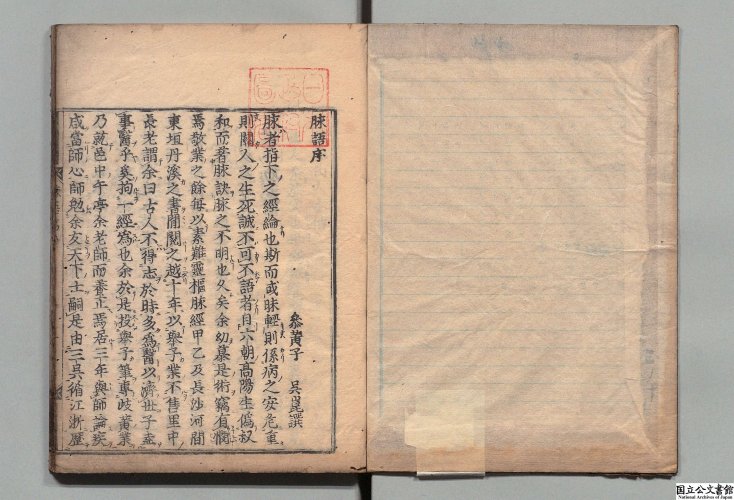 脉語序
參黄子 吳崑撰
脉者指下之經綸也斯而或昧輕則係病之安危重
則關人之生死誠不可不語者自六朝高陽生僞叔
和而著脉訣脉之不明也久矣余幼慕是術竊有慨
焉敬業之餘每以素難靈樞脉經甲乙及長沙河間
東垣丹溪之書閒閱之越十年以舉子業不售里中
長老謂余曰古人不得志於時多爲醫以濟世子盍
事醫乎奚拘一經爲也余於是投舉子筆專岐黄業
乃就邑中午亭余老師而養正焉居三年與師論疾
咸當師心師勉余友天下士嗣是由三吳循江浙歷
国立公文書館
National Archives of Japan